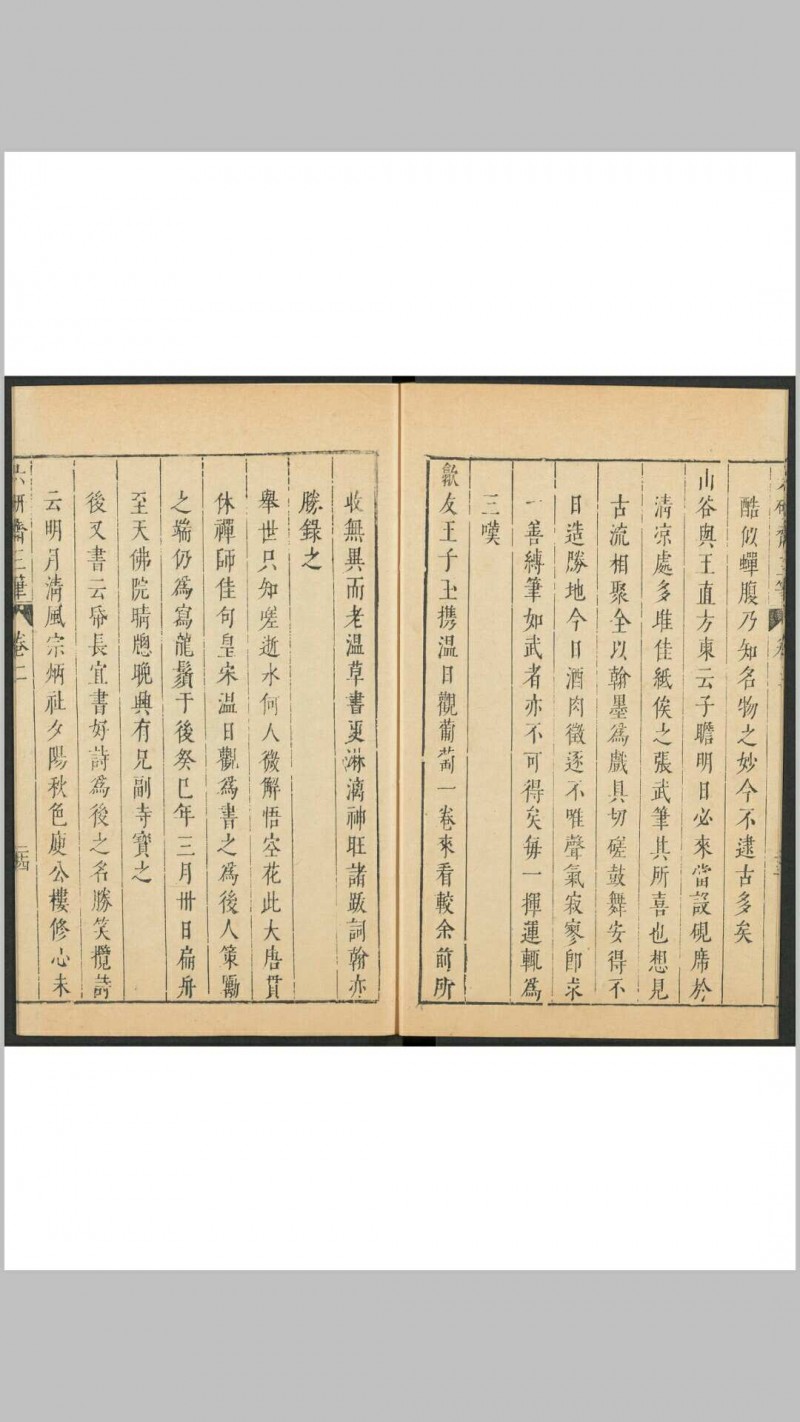 酷似蟬腹乃知名物之妙今不逮古多矣
山谷與王直方柬云子瞻明日必來當設硯席於
清凉處多堆佳紙俟之張武筆其所喜也想見
古流相聚全以翰墨為戲具切磋鼓舞安得不
日造勝地今日酒肉徵逐不唯聲氣寂寥卽求
一善縛筆如武者亦不可得矣每一揮運輒為
三嘆
歙友王子玉携溫日觀葡萄一卷來看較余前所
收無異而老溫草書更淋漓神旺諸跋詞翰亦
勝錄之
舉世只知嗟逝水何人微解悟空花此大唐貫
休禪師佳句皇宋溫日觀為書之為後人策勵
之端仍為寫龍鬚于後癸巳年三月卅日扁舟
至天佛院晴牕晚興有兄副寺寶之
後又書云帋長宜書好詩為後之名勝笑攬詩
云明月清風宗炳社夕陽秋色庾公樓修心未
六研齋三筆 卷二 二四